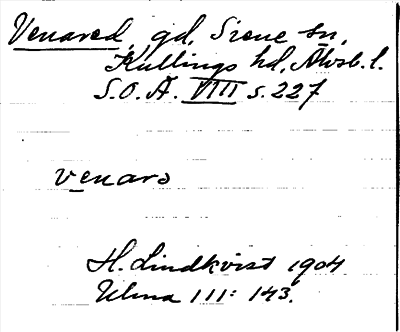 Venared, gd, Siene sn,
Kullings hd, Älvsb. l.
S.O.Ä. VIII s. 227
venaro
H. Lindkvist 1904
Ulma 111: 143.